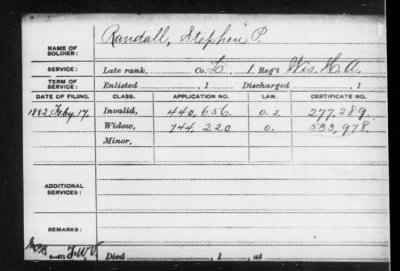 Randall, Stephen P.
NAME OF SOLDIER:
SERVICE: Late rank, Co. L, 1 Reg't Wis. H. A.
TERM OF SERVICE: Enlisted , 1 Discharged , 1
DATE OF FILING. CLASS. APPLICATION NO. LAW. CERTIFICATE NO.
1882 Feby. 17. Invalid, 440,656. 277,289.
Widow, 744,220 533,978.
Minor,
ADDITIONAL SERVICES:
REMARKS:
Died , 1 , at